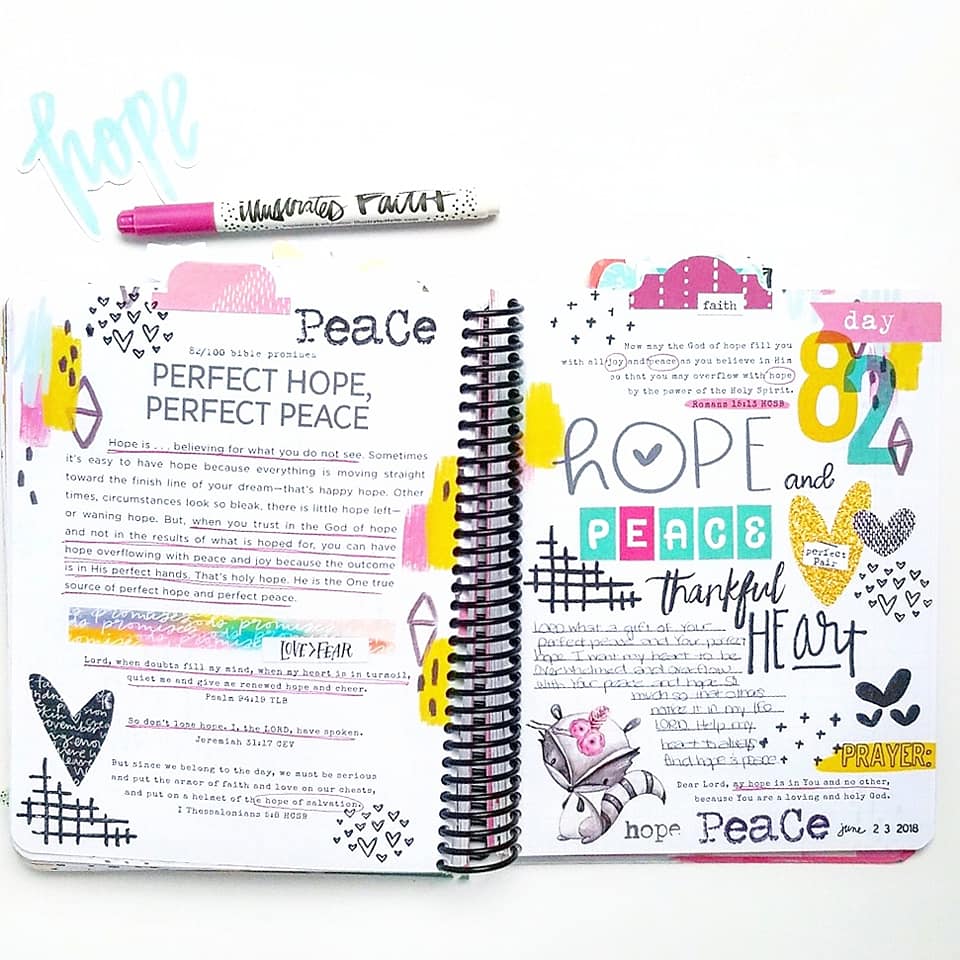 hope
illustrated FAITH
PeaCe
82/100 bible promises
PERFECT HOPE,
PERFECT PEACE
Hope is . . . believing for what you do not see. Sometimes
it's easy to have hope because everything is moving straight
toward the finish line of your dream—that's happy hope. Other
times, circumstances look so bleak, there is little hope left—
or waning hope. But, when you trust in the God of hope
and not in the results of what is hoped for, you can have
hope overflowing with peace and joy because the outcome
is in His perfect hands. That's holy hope. He is the One true
source of perfect hope and perfect peace.
promises
LOVE>FEAR
Lord, when doubts fill my mind, when my heart is in turmoil,
quiet me and give me renewed hope and cheer.
Psalm 94:19 TLB
So don't lose hope. I, the LORD, have spoken.
Jeremiah 31:17 CEV
But since we belong to the day, we must be serious
and put the armor of faith and love on our chests,
and put on a helmet of the hope of salvation.
I Thessalonians 5:8 HCSB
faith
day
82
Now may the God of hope fill you
with all joy and peace as you believe in Him
so that you may overflow with hope
by the power of the Holy Spirit.
Romans 15:13 HCSB
hOPE
and
PEACE
perfect
Pair
thankful
HEArt
LORD what a gift of Your
perfect peace and Your perfect
hope I want my heart to be
overwhelmed and overflow
with Your peace and hope. So
much so that others
notice it in my life.
LORD Help my
heart to always
find hope & peace
PRAYER:
Dear Lord, my hope is in You and no other,
because You are a loving and holy God.
hope PeaCe june 23 2018